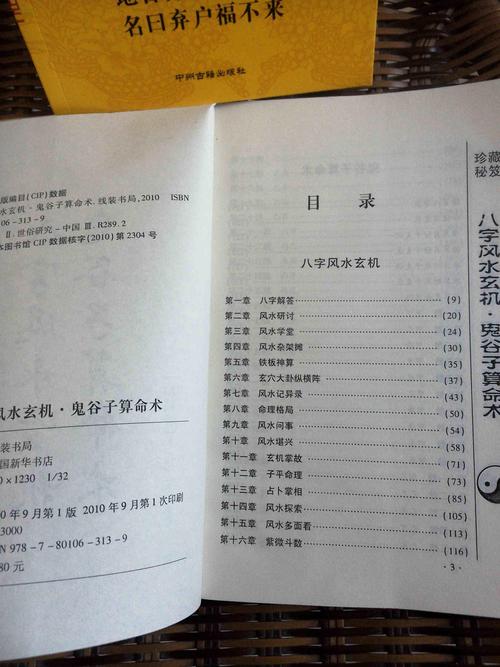 名日弃户福不来
中州古籍出版社
版编目(CIP)数据
水玄机·鬼谷子算命术.线装书局,2010 ISBN
06-313-9
Ⅱ.世俗研究-中国 Ⅲ.R289.2
本图书馆CIP数据核字(2010)第2304号
风水玄机·鬼谷子算命术
装书局
国新华书店
0×1230 1/32
0年9月第1版 2010年9月第1次印刷
3000
N 978-7-80106-313-9
80元
目录
八字风水玄机
第一章 八字解答 (9)
第二章 风水研讨 (20)
第三章 风水学堂 (24)
第四章 风水杂架摊 (30)
第五章 铁板神算 (35)
第六章 玄穴大卦纵横阵 (37)
第七章 风水记异录 (43)
第八章 命理格局 (50)
第九章 风水问事 (54)
第十章 风水堪兴 (58)
第十一章 玄机掌故 (71)
第十二章 子平命理 (73)
第十三章 占卜掌相 (85)
第十四章 风水探索 (105)
第十五章 风水多面看 (113)
第十六章 紫微斗数 (116)
·3·
珍藏
秘笈
八字风水玄机·鬼谷子算命术